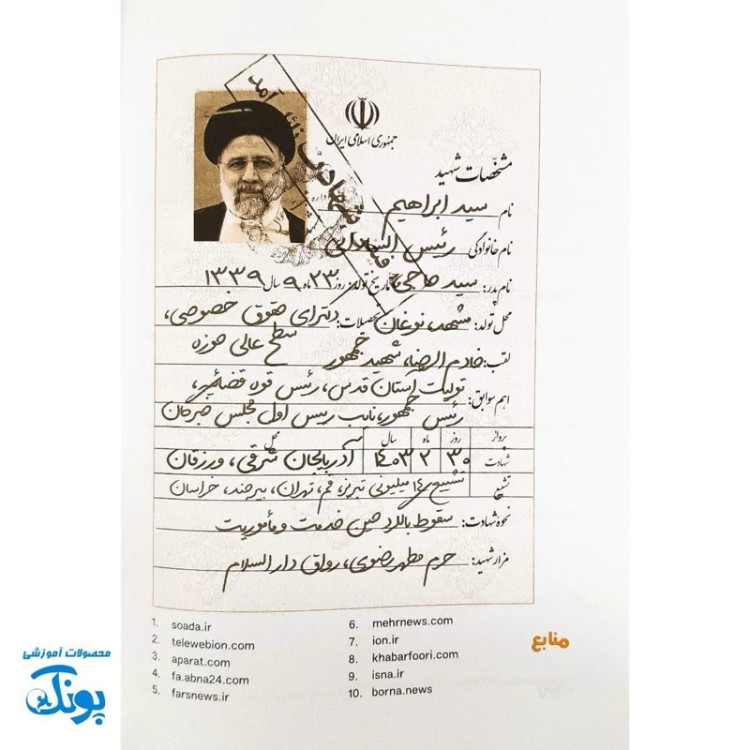 جمهوری اسلامی ایران
مشخصات شهید
نام سید ابراهیم
نام خانوادگی رئیس الساداتی
نام پدر: سید حاجی تاریخ تولد: روز ۲۳ ماه ۹ سال ۱۳۳۹
محل تولد: مشهد، نوغان تحصیلات: دکترای حقوق خصوصی،
لقب: خادم الرضا، شهید جمهور سطح عالی حوزه
اهم سوابق: تولیت آستان قدس، رئیس قوه قضائیه،
رئیس جمهور، نایب رییس اول مجلس خبرگان
پرواز روز ماه سال محل
شهادت ۳۰ ۲ ۱۴۰۳ آذربایجان شرقی، ورزقان
تشییع تشییع میلیونی تبریز، قم، تهران، بیرجند، خراسان
نحوه شهادت: سقوط بالگرد حین خدمت و مأموریت
مزار شهید: حرم مطهر رضوی، رواق دار السلام
منابع
1. soada.ir
2. telewebion.com
3. aparat.com
4. fa.abna24.com
5. farsnews.ir
6. mehrnews.com
7. ion.ir
8. khabarfoori.com
9. isna.ir
10. borna.news
محصولات آموزشی
پونک